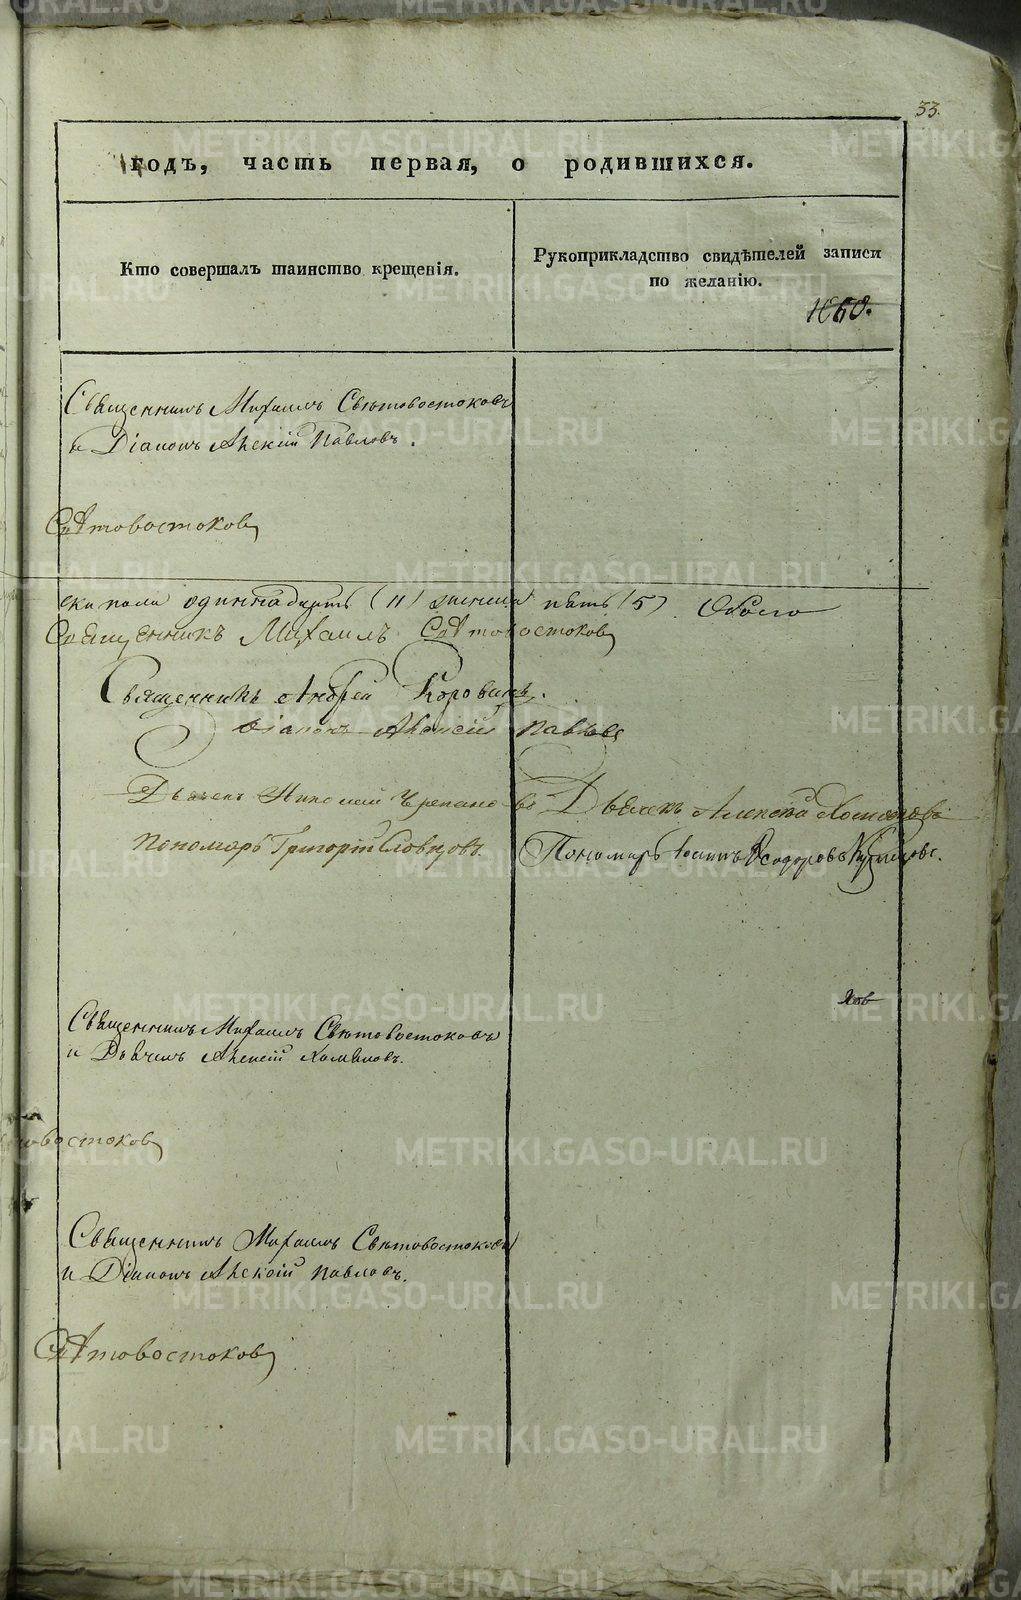 33.
годъ, часть первая, о родившихся.
Кто совершалъ таинство крещенія.
Рукоприкладство свидѣтелей записи
по желанію.
Священникъ Михаилъ Свѣтовостоковъ
и Діаконъ Алексій Павловъ.
Свѣтовостоковъ
пола одиннадцать (11) женска пять (5) Обоего
Священникъ Михаилъ Свѣтовостоковъ
Священникъ Андрей Коровинъ.
Діаконъ Алексій Павловъ
Дьячекъ Николай Черепановъ Дьячекъ Алексѣй
Пономарь Григорій Словцовъ. Пономарь Іоаннъ Ѳеодоровъ Кузнецовъ.
Священникъ Михаилъ Свѣтовостоковъ
и Дьячекъ Алексій
востоковъ
Священникъ Михаилъ Свѣтовостоковъ
и Діаконъ Алексій Павловъ.
Свѣтовостоковъ
METRIKI.GASO-URAL.RU